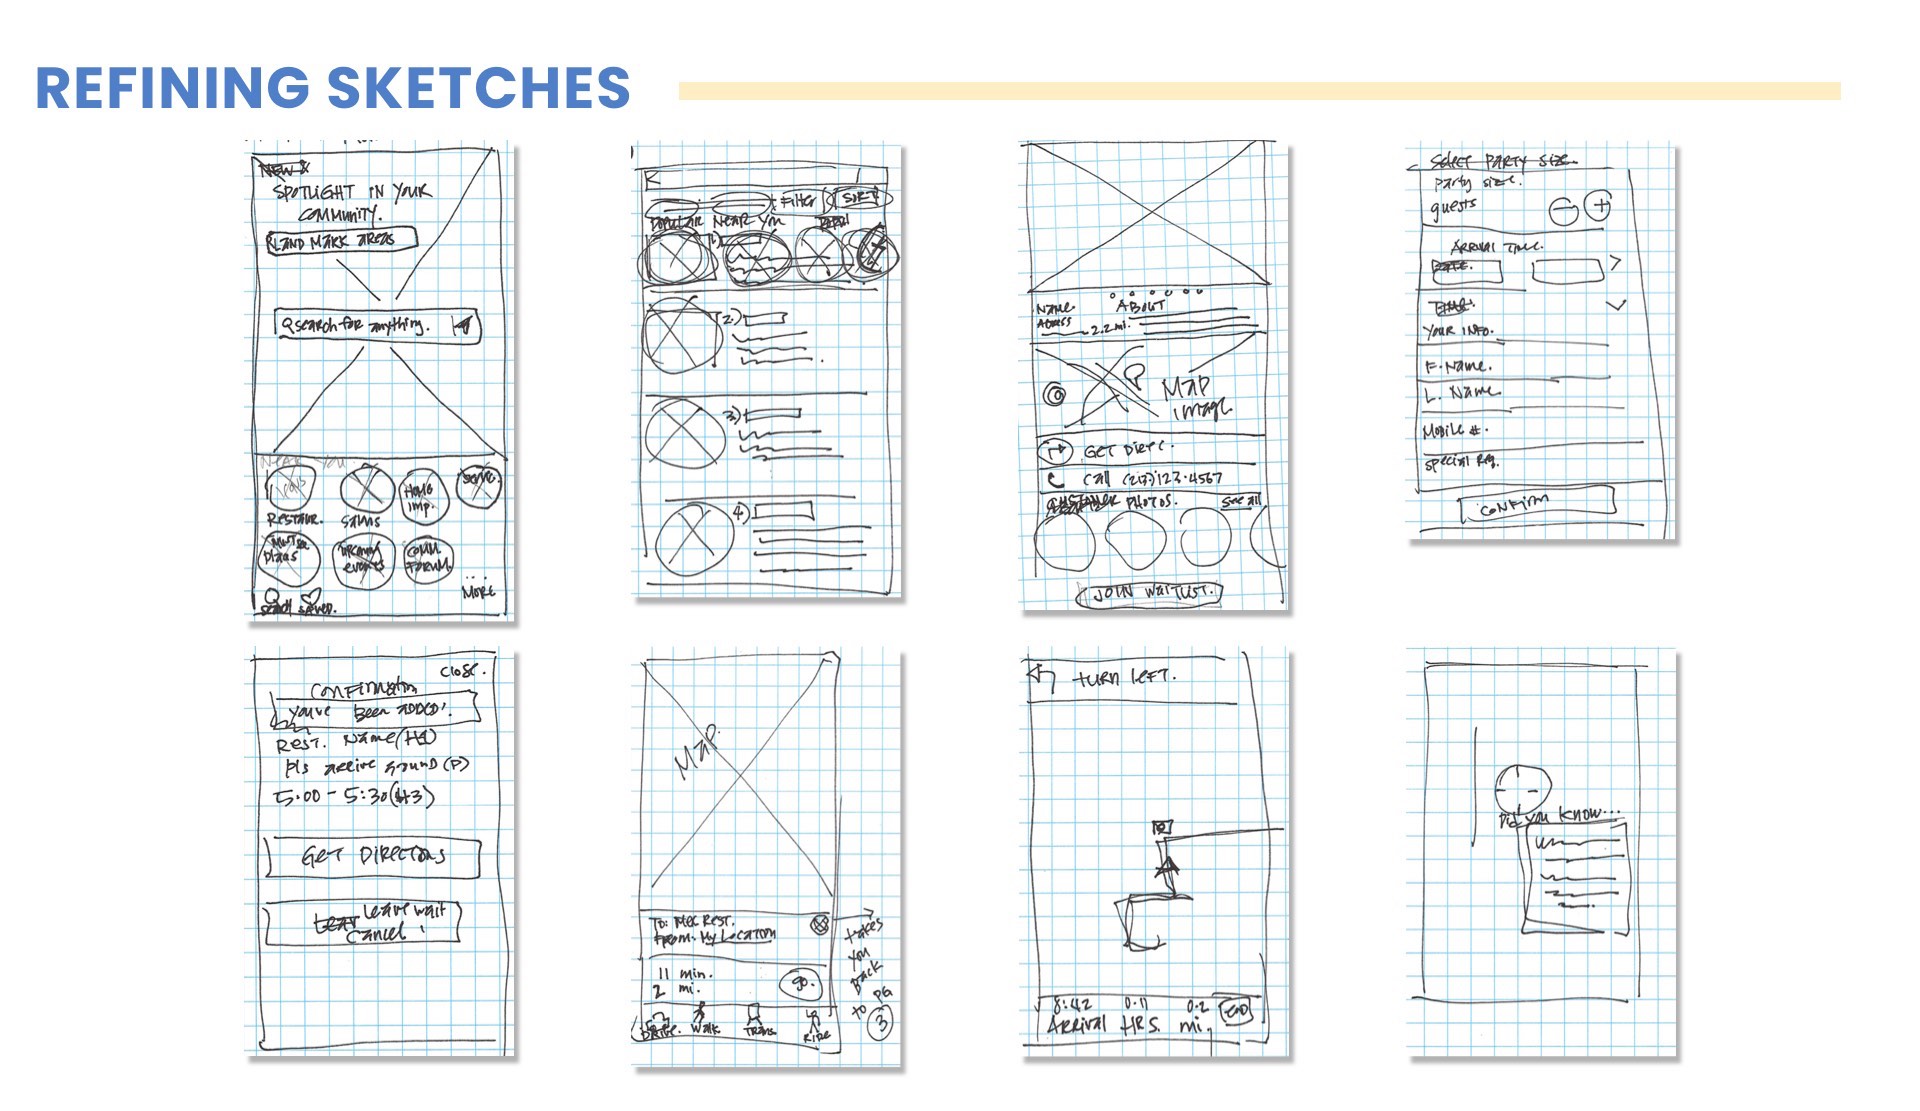 REFINING SKETCHES
NEW &
SPOTLIGHT IN YOUR
COMMUNITY.
LAND MARK AREAS
search for anything.
Near You
RESTAUR.
Home
imp.
Serve.
events
COMM
FORUM.
...
MORE
Search saved.
Filter
SORT
POPULAR NEAR YOU
2)
3)
4)
NAME.
ABOUT
2.2 mi.
MAP
image
GET DIREC.
Call (213)123-4567
CUSTOMER PHOTOS.
See all
JOIN WAITLIST.
Select PARTY SIZE.
Party size.
guests
ARRIVAL TIME.
DATE.
TIME.
YOUR INFO.
F. Name.
L. Name
Mobile #.
Special Req.
CONFIRM
CLOSE.
CONFIRMATION
YOU'VE BEEN ADDED!
REST. Name (H1)
pls arrive around (P)
5:00 - 5:30 (H3)
GET DIRECTIONS
Leave wait
Cancel
MAP.
From: My Location
11 min.
2 mi.
go.
DRIVE. WALK TRANS. RIDE
takes
you
back
to PG
3
TURN LEFT.
8:42 0.11 0.2
Arrival HRS. mi.
END
Did you know...